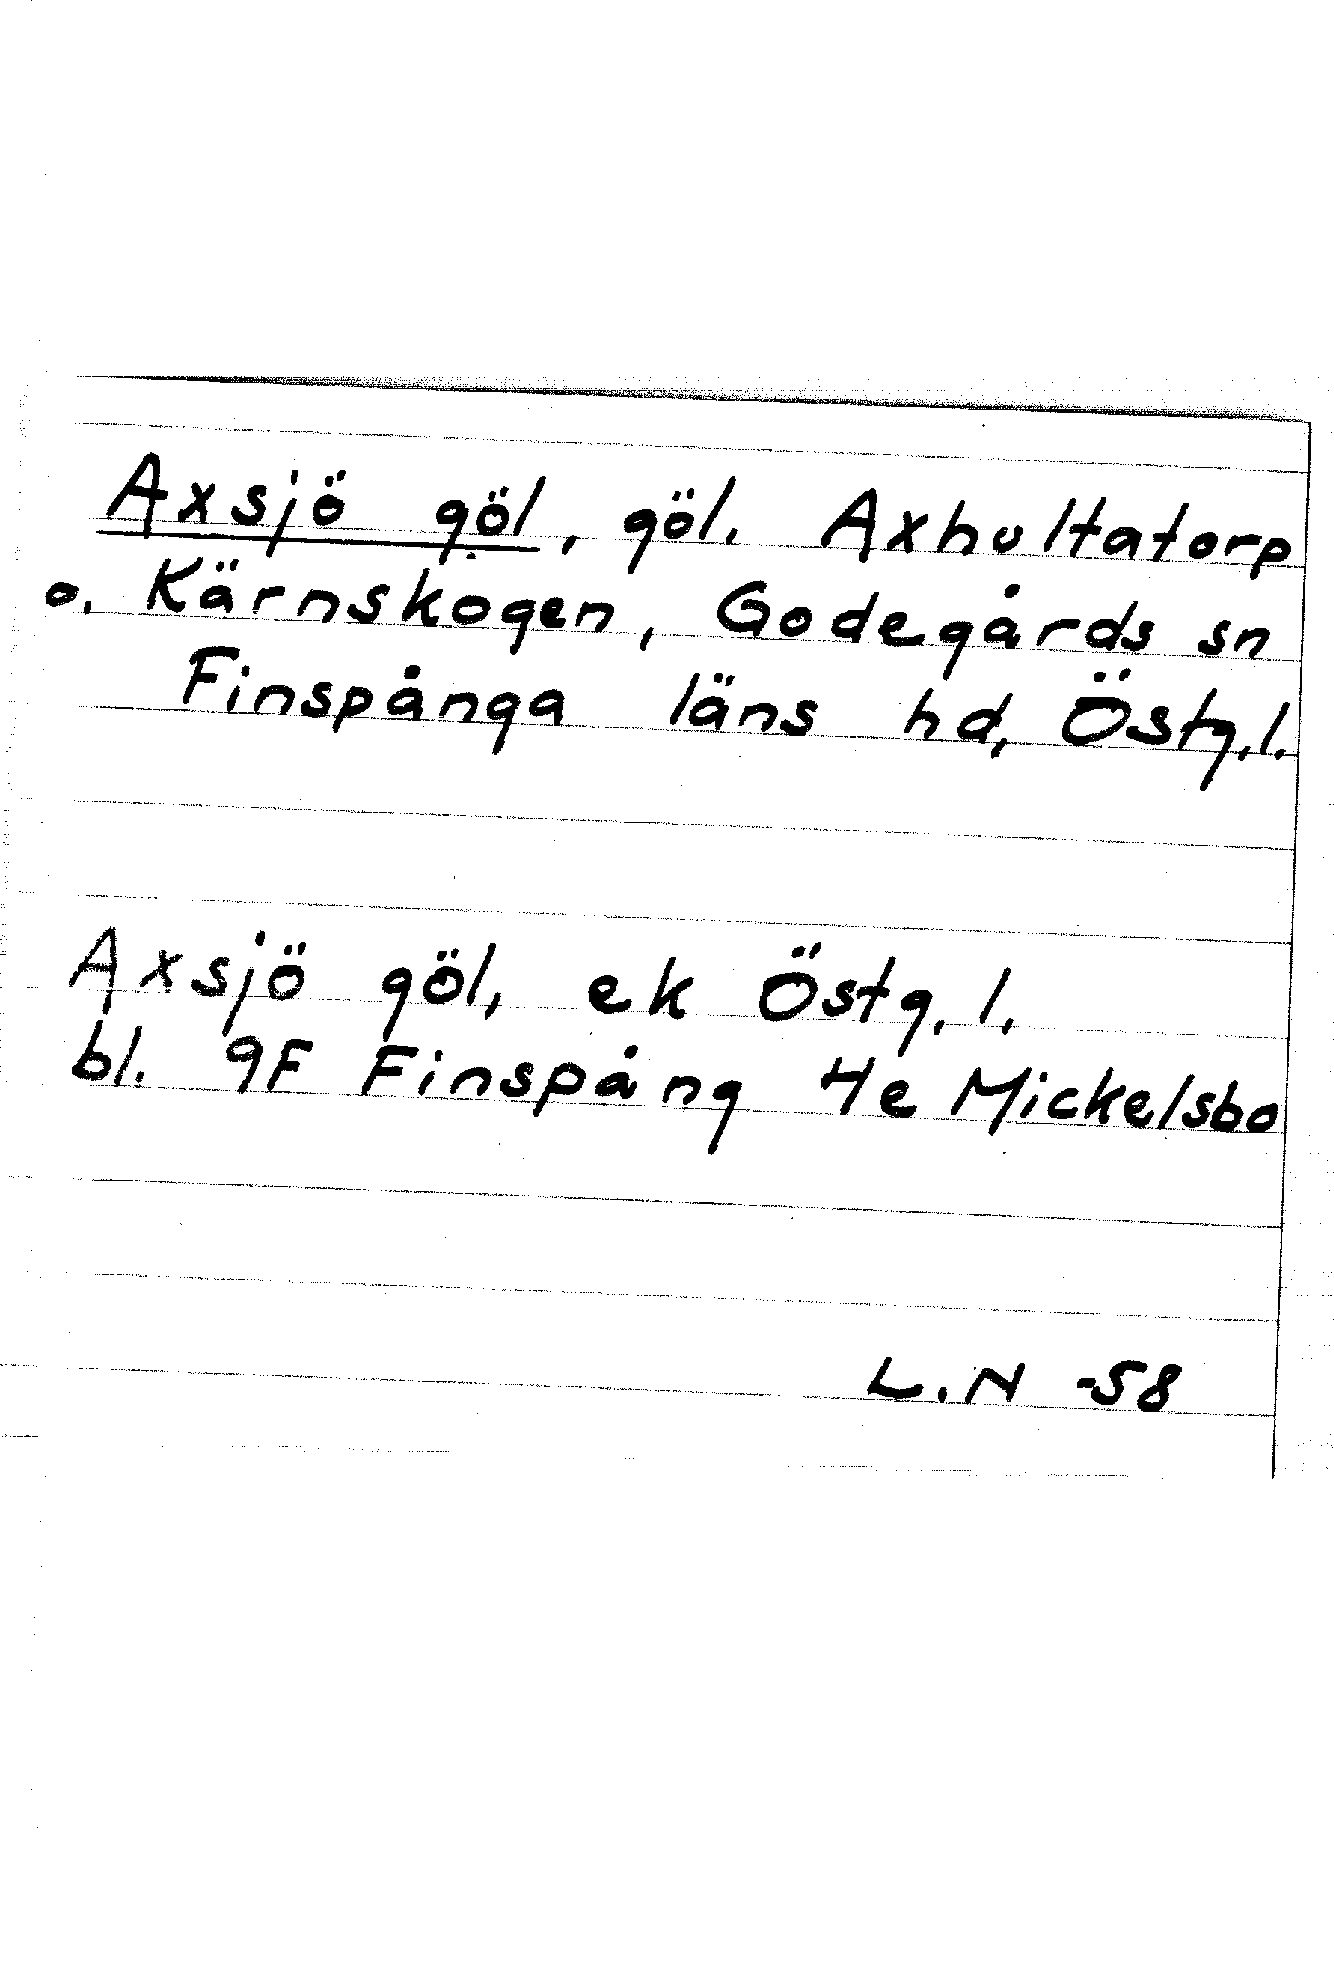 Axsjö göl, göl. Axhultatorp
o. Kärnskogen, Godegårds sn
Finspånga läns hd, Östg.l.
Axsjö göl, ek Östg. l.
bl. 9F Finspång 4e Mickelsbo
L.N -58